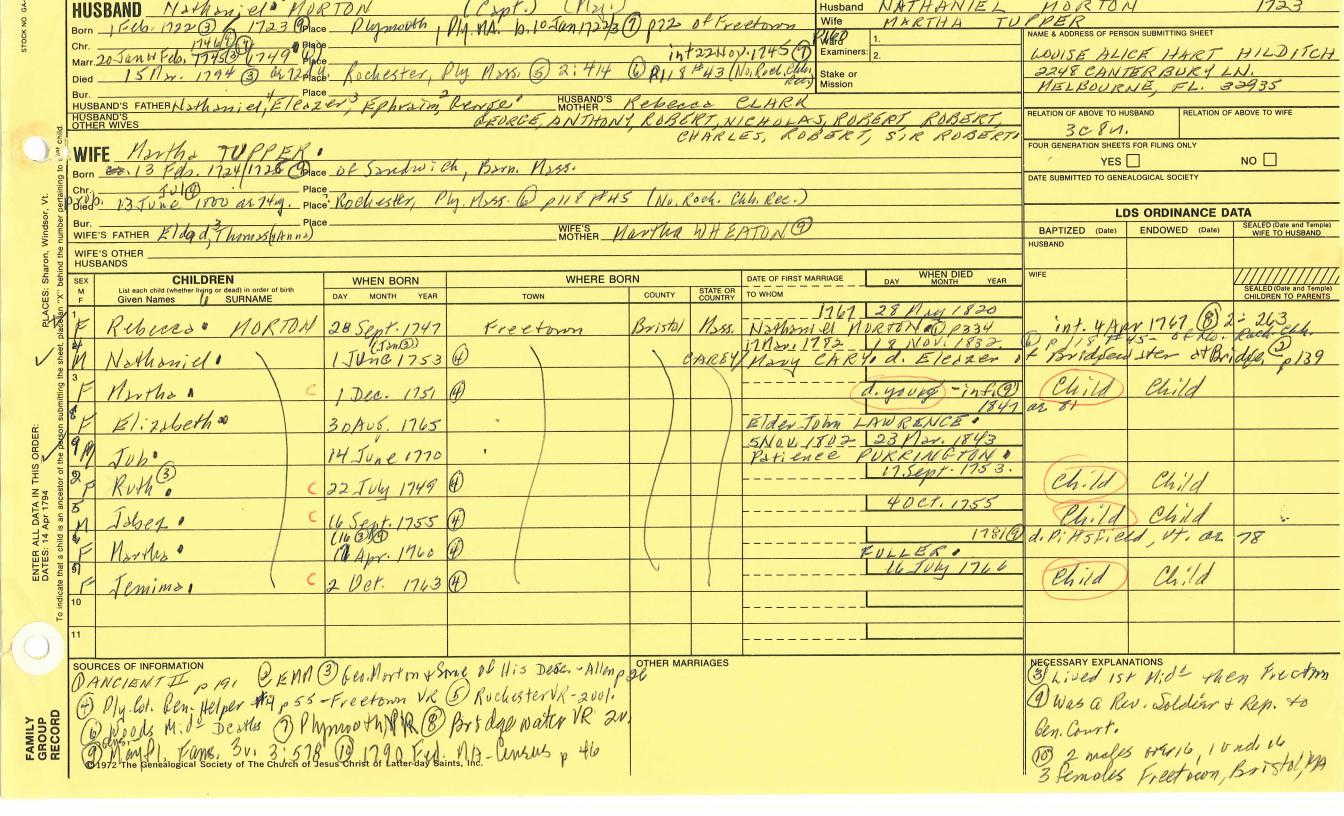 HUSBAND Nathaniel MORTON (Capt.) (Maj.)
Husband NATHANIEL MORTON 1723
Wife MARTHA TUPPER
Born 1 Feb. 1722 (3) 1723 (9) Place Plymouth, Ply. MA. b. 10 Jan 1722/3 (7) p72 of Freetown
Chr. Place
Marr. 20 Jan 1745 (3) 1749 Place int 22 Nov. 1745 (7)
Died 15 Mar. 1794 (3) Place Rochester, Ply. Mass. (5) 2:414 (6) p118 #43 (No. Roch. Chh. Rec.)
Bur.
Ward
Examiners: 1.
2.
Stake or
Mission
HUSBAND'S FATHER Nathaniel, Eleazer, Ephraim, George
HUSBAND'S MOTHER Rebecca CLARK
HUSBAND'S OTHER WIVES
GEORGE, ANTHONY, ROBERT, NICHOLAS, ROBERT ROBERT,
CHARLES, ROBERT, SIR ROBERT
NAME & ADDRESS OF PERSON SUBMITTING SHEET
LOUISE ALICE HART HILDITCH
2248 CANTERBURY LN.
MELBOURNE, FL. 32935
RELATION OF ABOVE TO HUSBAND
RELATION OF ABOVE TO WIFE
FOUR GENERATION SHEETS FOR FILING ONLY
YES NO
DATE SUBMITTED TO GENEALOGICAL SOCIETY
WIFE Martha TUPPER
Born 13 Feb. 1724/1725 (9) Place of Sandwich, Barn. Mass.
Chr. Place
Died 13 June 1800 ae 74y. Place Rochester, Ply. Mass. (6) p118 #45 (No. Roch. Chh. Rec.)
Bur. Place
WIFE'S FATHER Eldad, Thomas (Anna)
WIFE'S MOTHER Martha WHEATON (9)
WIFE'S OTHER HUSBANDS
LDS ORDINANCE DATA
BAPTIZED (Date) ENDOWED (Date) SEALED (Date and Temple) WIFE TO HUSBAND
HUSBAND
WIFE
SEALED (Date and Temple) CHILDREN TO PARENTS
SEX M F
CHILDREN
List each child (whether living or dead) in order of birth
Given Names SURNAME
WHEN BORN
DAY MONTH YEAR
WHERE BORN
TOWN COUNTY STATE OR COUNTRY
DATE OF FIRST MARRIAGE
TO WHOM
WHEN DIED
DAY MONTH YEAR
1 F Rebecca MORTON 28 Sept. 1747 Freetown Bristol Mass. 1767 28 May 1820
Nathaniel MORTON (6) p334 int. 4 Apr 1767 (8) 2-263
4 M Nathaniel 1 June 1753 (4) (Jan (3)) Mar. 1782 18 Nov. 1832
CAREY/ Mary CARY d. Eleazer of Bridgewater at Bridge. (2) p139
(6) p118 #45- of No. Roch. Chh.
3 F Martha C 1 Dec. 1751 (4) d. young - inf (9) Child Child
8 F Elizabeth 30 Aug. 1765 1847 ae 81
Elder John LAWRENCE
9 M Job 14 June 1770 5 Nov. 1802 23 Mar. 1843
Patience PURRINGTON
2 F Ruth (3) C 22 July 1749 (4) 17 Sept. 1753. Child Child
5 M Jabez C 16 Sept. 1755 (4) 4 Oct. 1755 Child Child
6 F Martha Apr. 1760 (4) 1781 (9) d. Pittsfield, Vt. ae 78
FULLER
F Jemima C 2 Oct. 1763 (4) 16 July 1766 Child Child
10
11
SOURCES OF INFORMATION
(1) ANCIENT II p 191 (2) EMA (3) Geo. Morton & Some of His Desc. - Allen p 26
(4) Ply. Col. Gen. Helper #4 p 55 - Freetown VR (5) Rochester VR - 2vol.
(6) Woods Mid. Deaths (7) Plymouth VR (8) Bridgewater VR 2v.
(9) Mayfl. Fams. 3v. 3:578 (10) 1790 Fed. MA-Census p 46
©1972 The Genealogical Society of The Church of Jesus Christ of Latter-day Saints, Inc.
OTHER MARRIAGES
NECESSARY EXPLANATIONS
(3) Lived 1st Mid. then Freetown
(9) Was a Rev. Soldier & Rep. to
Gen. Court.
(10) 2 males over 16, 1 und 16
3 females Freetown, Bristol, MA
FAMILY GROUP RECORD
ENTER ALL DATA IN THIS ORDER:
DATES: 14 Apr 1794
PLACES: Sharon, Windsor, Vt.